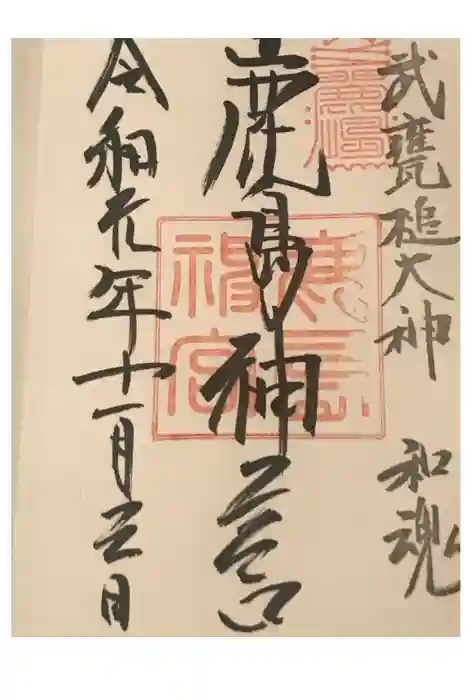 武甕槌大神　和魂
鹿島神宮
鹿島神宮
令和元年十一月三日